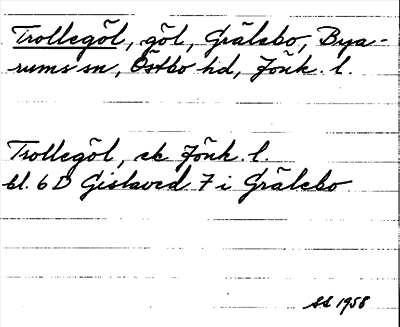 Trollegöl, göl, Grälebo, Bya-
rums sn, Östbo hd, Jönk. l.
Trollegöl, ek Jönk. l.
bl. 6 D Gislaved 7 i Grälebo
SS 1958